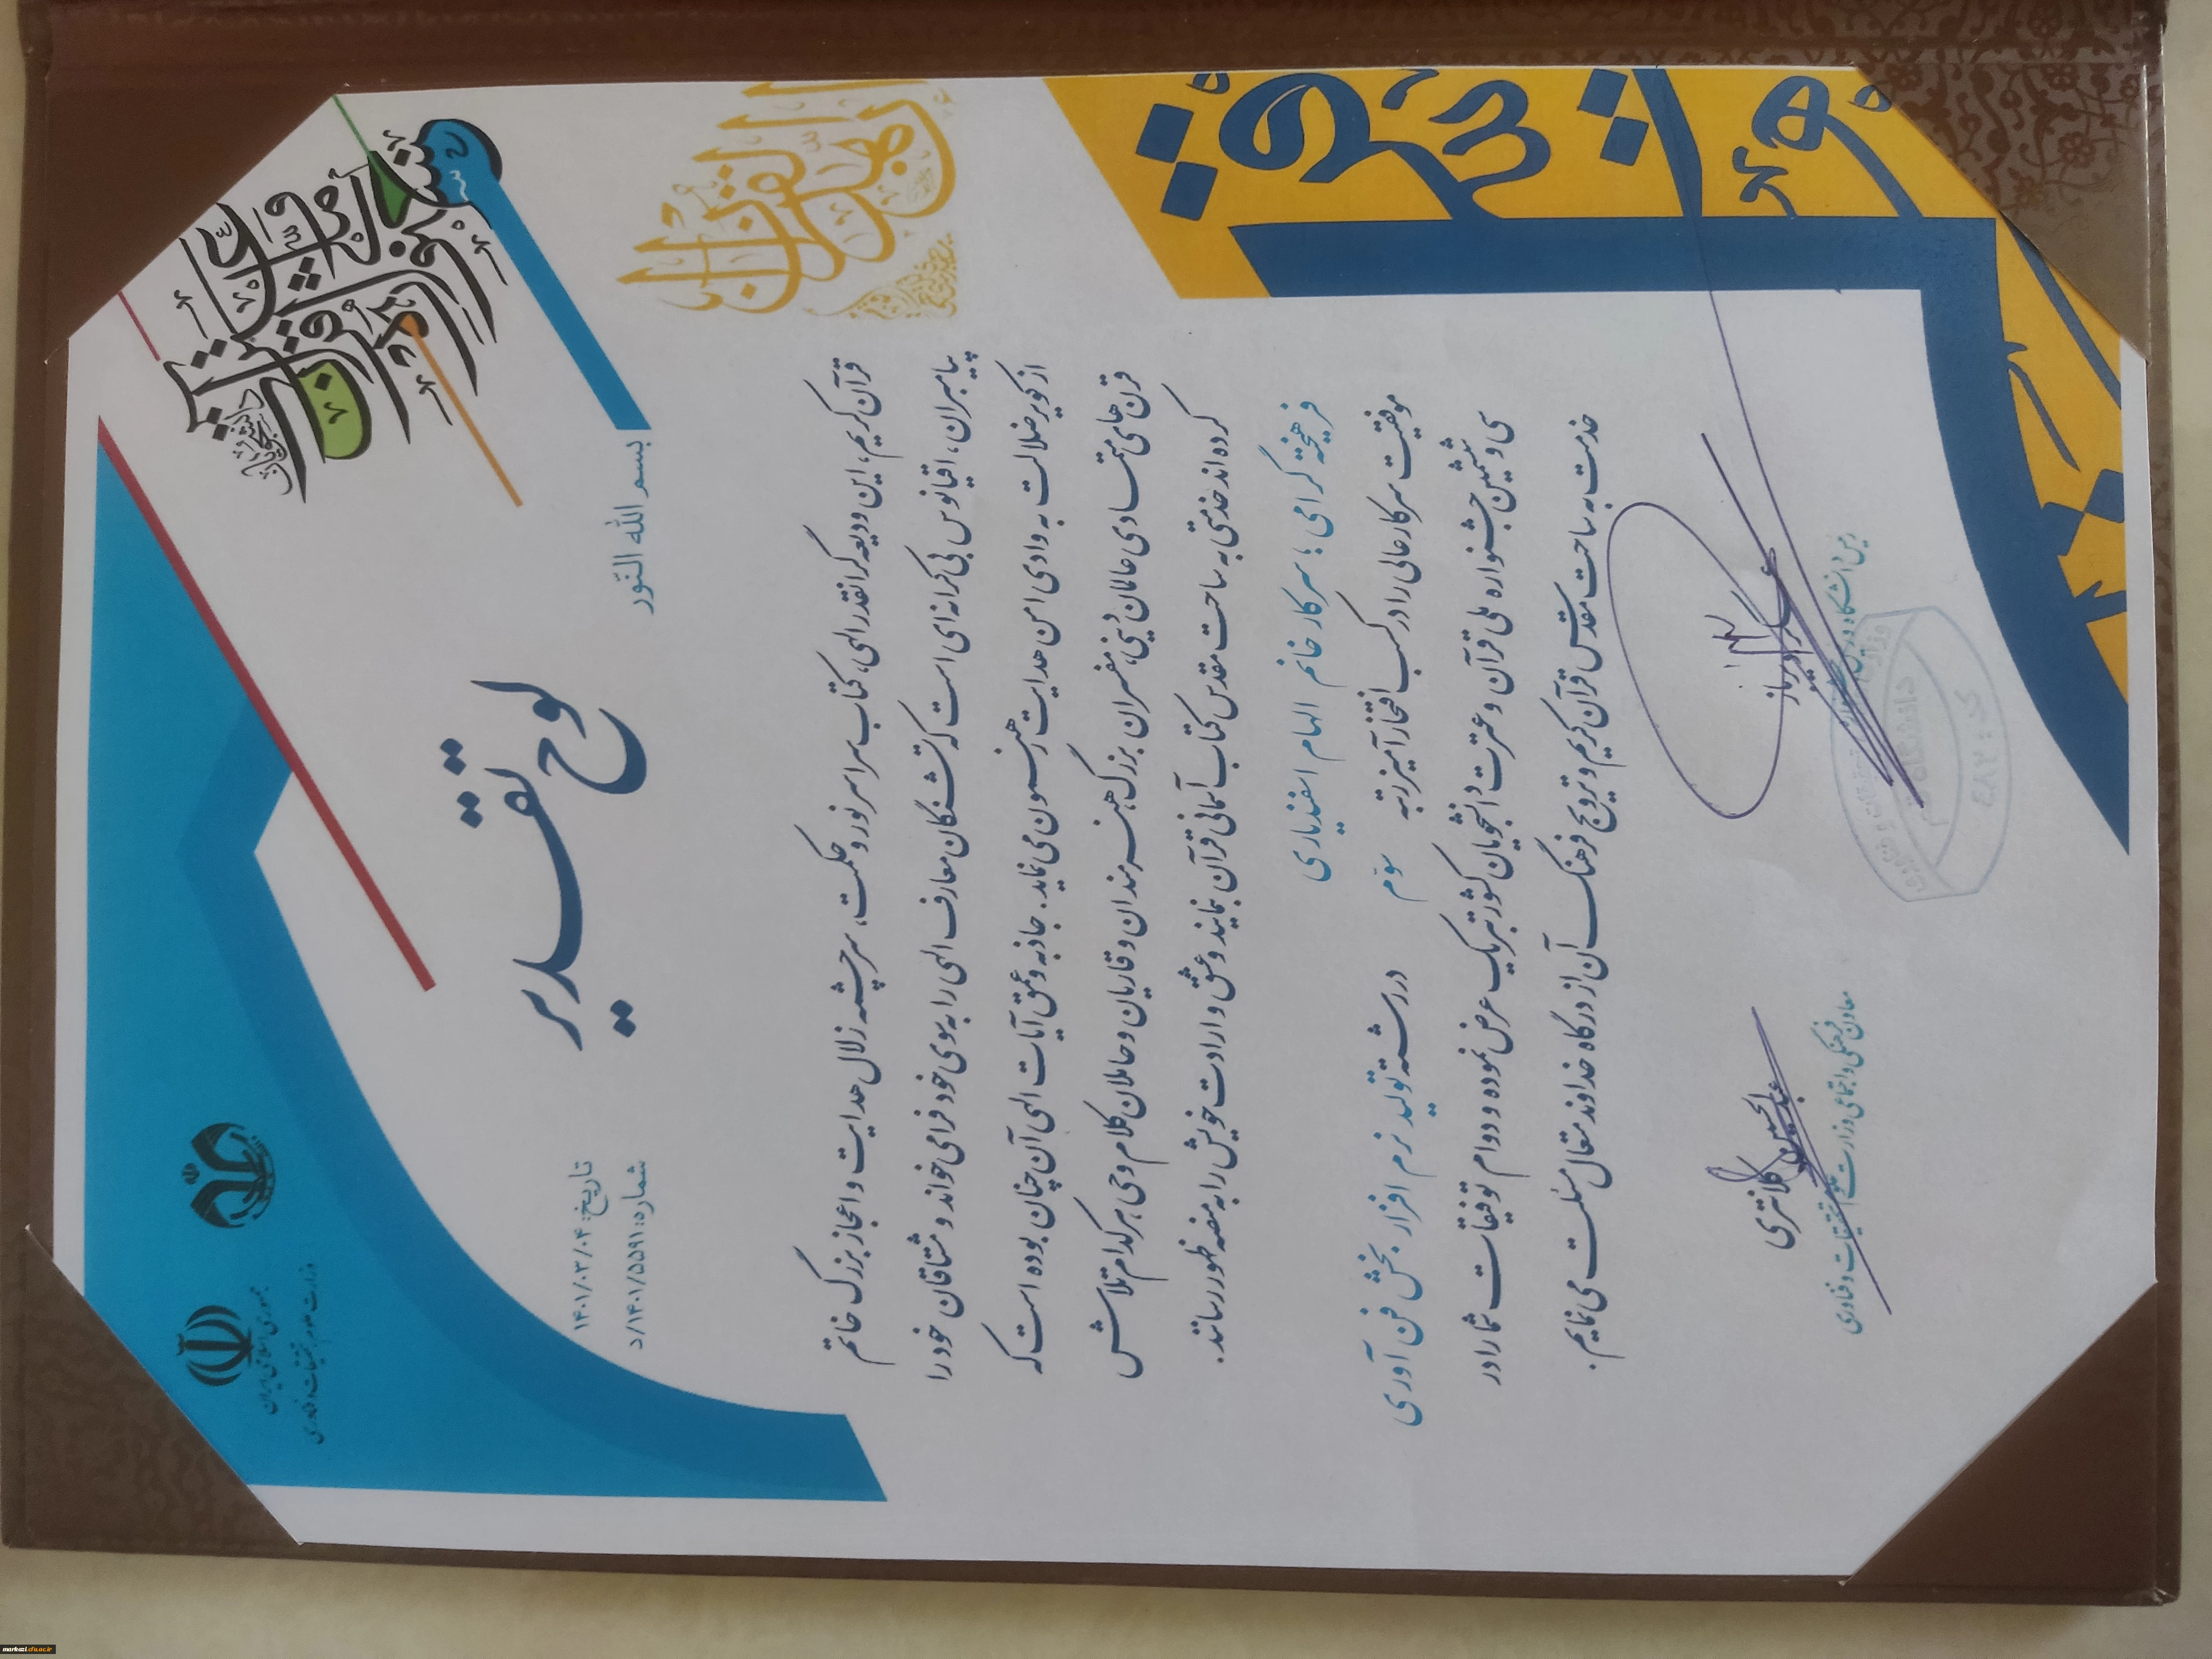 جمهوری اسلامی ایران
وزارت علوم، تحقیقات و فناوری
بسم الله النّور
لوح تقدیر
تاریخ: ۱۴۰۱/۰۳/۰۴
شماره: ۱۴۰۱/۵۵۹۱/د
قرآن کریم، این ودیعه گرانقدر الهی، کتاب سراسر نور و حکمت، سرچشمه زلال هدایت و اعجاز بزرگ خاتم
پیامبران، اقیانوس بی کرانه ای است که تشنگان معارف الهی را به سوی خود فرا می خواند و مشتاقان خود را
از کویر ضلالت به وادی امن هدایت رهنمون می نماید. جاذبه و عمق آیات الهی آن چنان بوده است که
قرن های متمادی عالمان دینی، مفسران بزرگ، هنرمندان و قاریان و حاملان کلام وحی هر کدام تلاش
کرده اند خدمتی به ساحت مقدس کتاب آسمانی قرآن نمایند و عشق و ارادت خویش را به منصه ظهور رسانند.
فرهیخته گرامی؛ سرکار خانم الهام اسفندیاری
موفقیت سرکار عالی را در کسب افتخارآمیز رتبه سوّم در رشته تولید نرم افزار، بخش فن آوری
سی و ششمین جشنواره ملی قرآن و عترت دانشجویان کشور تبریک عرض نموده و دوام توفیقات شما را در
خدمت به ساحت مقدس قرآن کریم و ترویج فرهنگ آن از درگاه خداوند متعال مسئلت می نمایم.
عبدالحسین کلانتری
معاون فرهنگی و اجتماعی وزارت علوم، تحقیقات و فناوری
دانشگاه قم
markazi.cfu.ac.ir